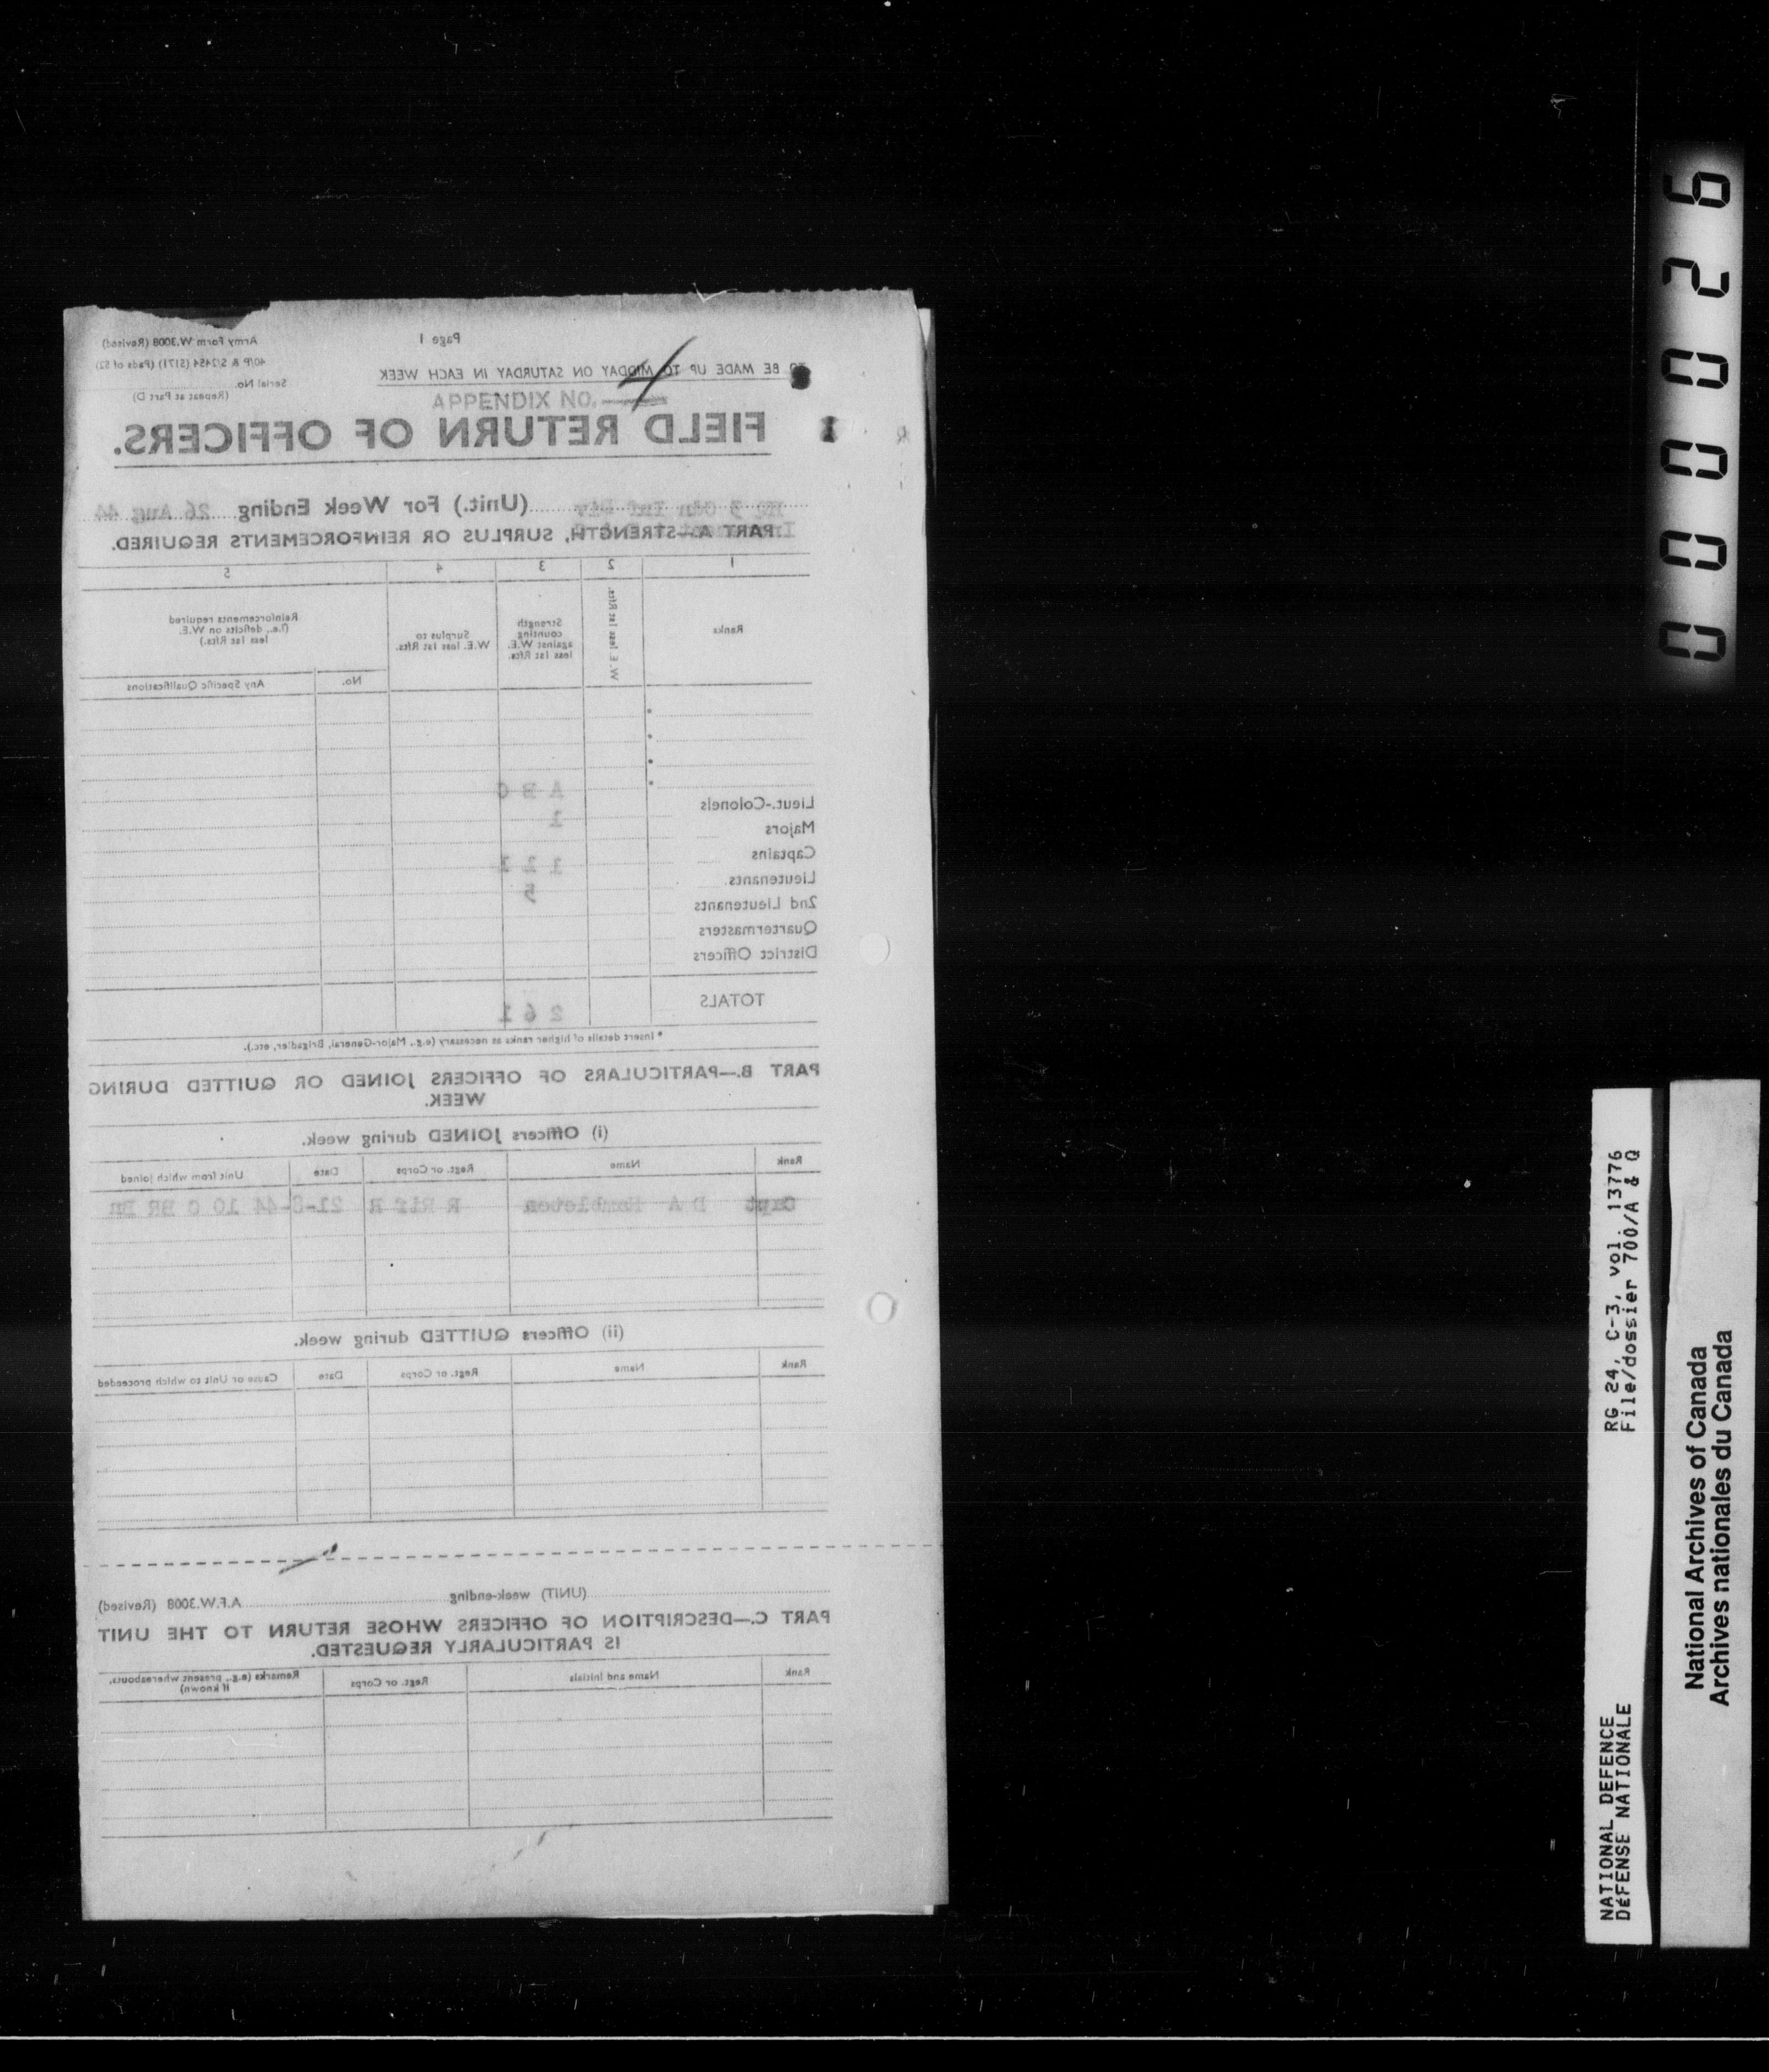 Page 1
Army Form W.3008 (Revised)
40/P & S/2454 (5171) (Pads of 52)
Serial No.
(Repeat at Part D)
TO BE MADE UP TO MIDDAY ON SATURDAY IN EACH WEEK
APPENDIX NO. 4
FIELD RETURN OF OFFICERS.
HQ 3 Cdn Inf Div (Unit.) For Week Ending 26 Aug 44
PART A.—STRENGTH, SURPLUS OR REINFORCEMENTS REQUIRED.
1 2 3 4 5
Ranks
W.E. less 1st Rfts.
Strength
counting
against W.E.
less 1st Rfts.
Surplus to
W.E. less 1st Rfts.
Reinforcements required
(i.e., deficits on W.E.
less 1st Rfts.)
No. Any Specific Qualifications
A B C
Lieut.-Colonels
Majors 1
Captains
Lieutenants
2nd Lieutenants
Quartermasters
District Officers
5
TOTALS 2 6 1
* Insert details of higher ranks as necessary (e.g., Major-General, Brigadier, etc.).
PART B.—PARTICULARS OF OFFICERS JOINED OR QUITTED DURING
WEEK.
(i) Officers JOINED during week.
Rank Name Regt. or Corps Date Unit from which joined
Capt D A Hambleton R Rif R 21-8-44 10 C BR Bn
(ii) Officers QUITTED during week.
Rank Name Regt. or Corps Date Cause or Unit to which proceeded
(UNIT) week-ending A.F.W.3008 (Revised)
PART C.—DESCRIPTION OF OFFICERS WHOSE RETURN TO THE UNIT
IS PARTICULARLY REQUESTED.
Rank Name and Initials Regt. or Corps Remarks (e.g., present whereabouts,
if known)
000026
NATIONAL DEFENCE RG 24, C-3, vol. 13776
DÉFENSE NATIONALE File/dossier 700/A & Q
National Archives of Canada
Archives nationales du Canada